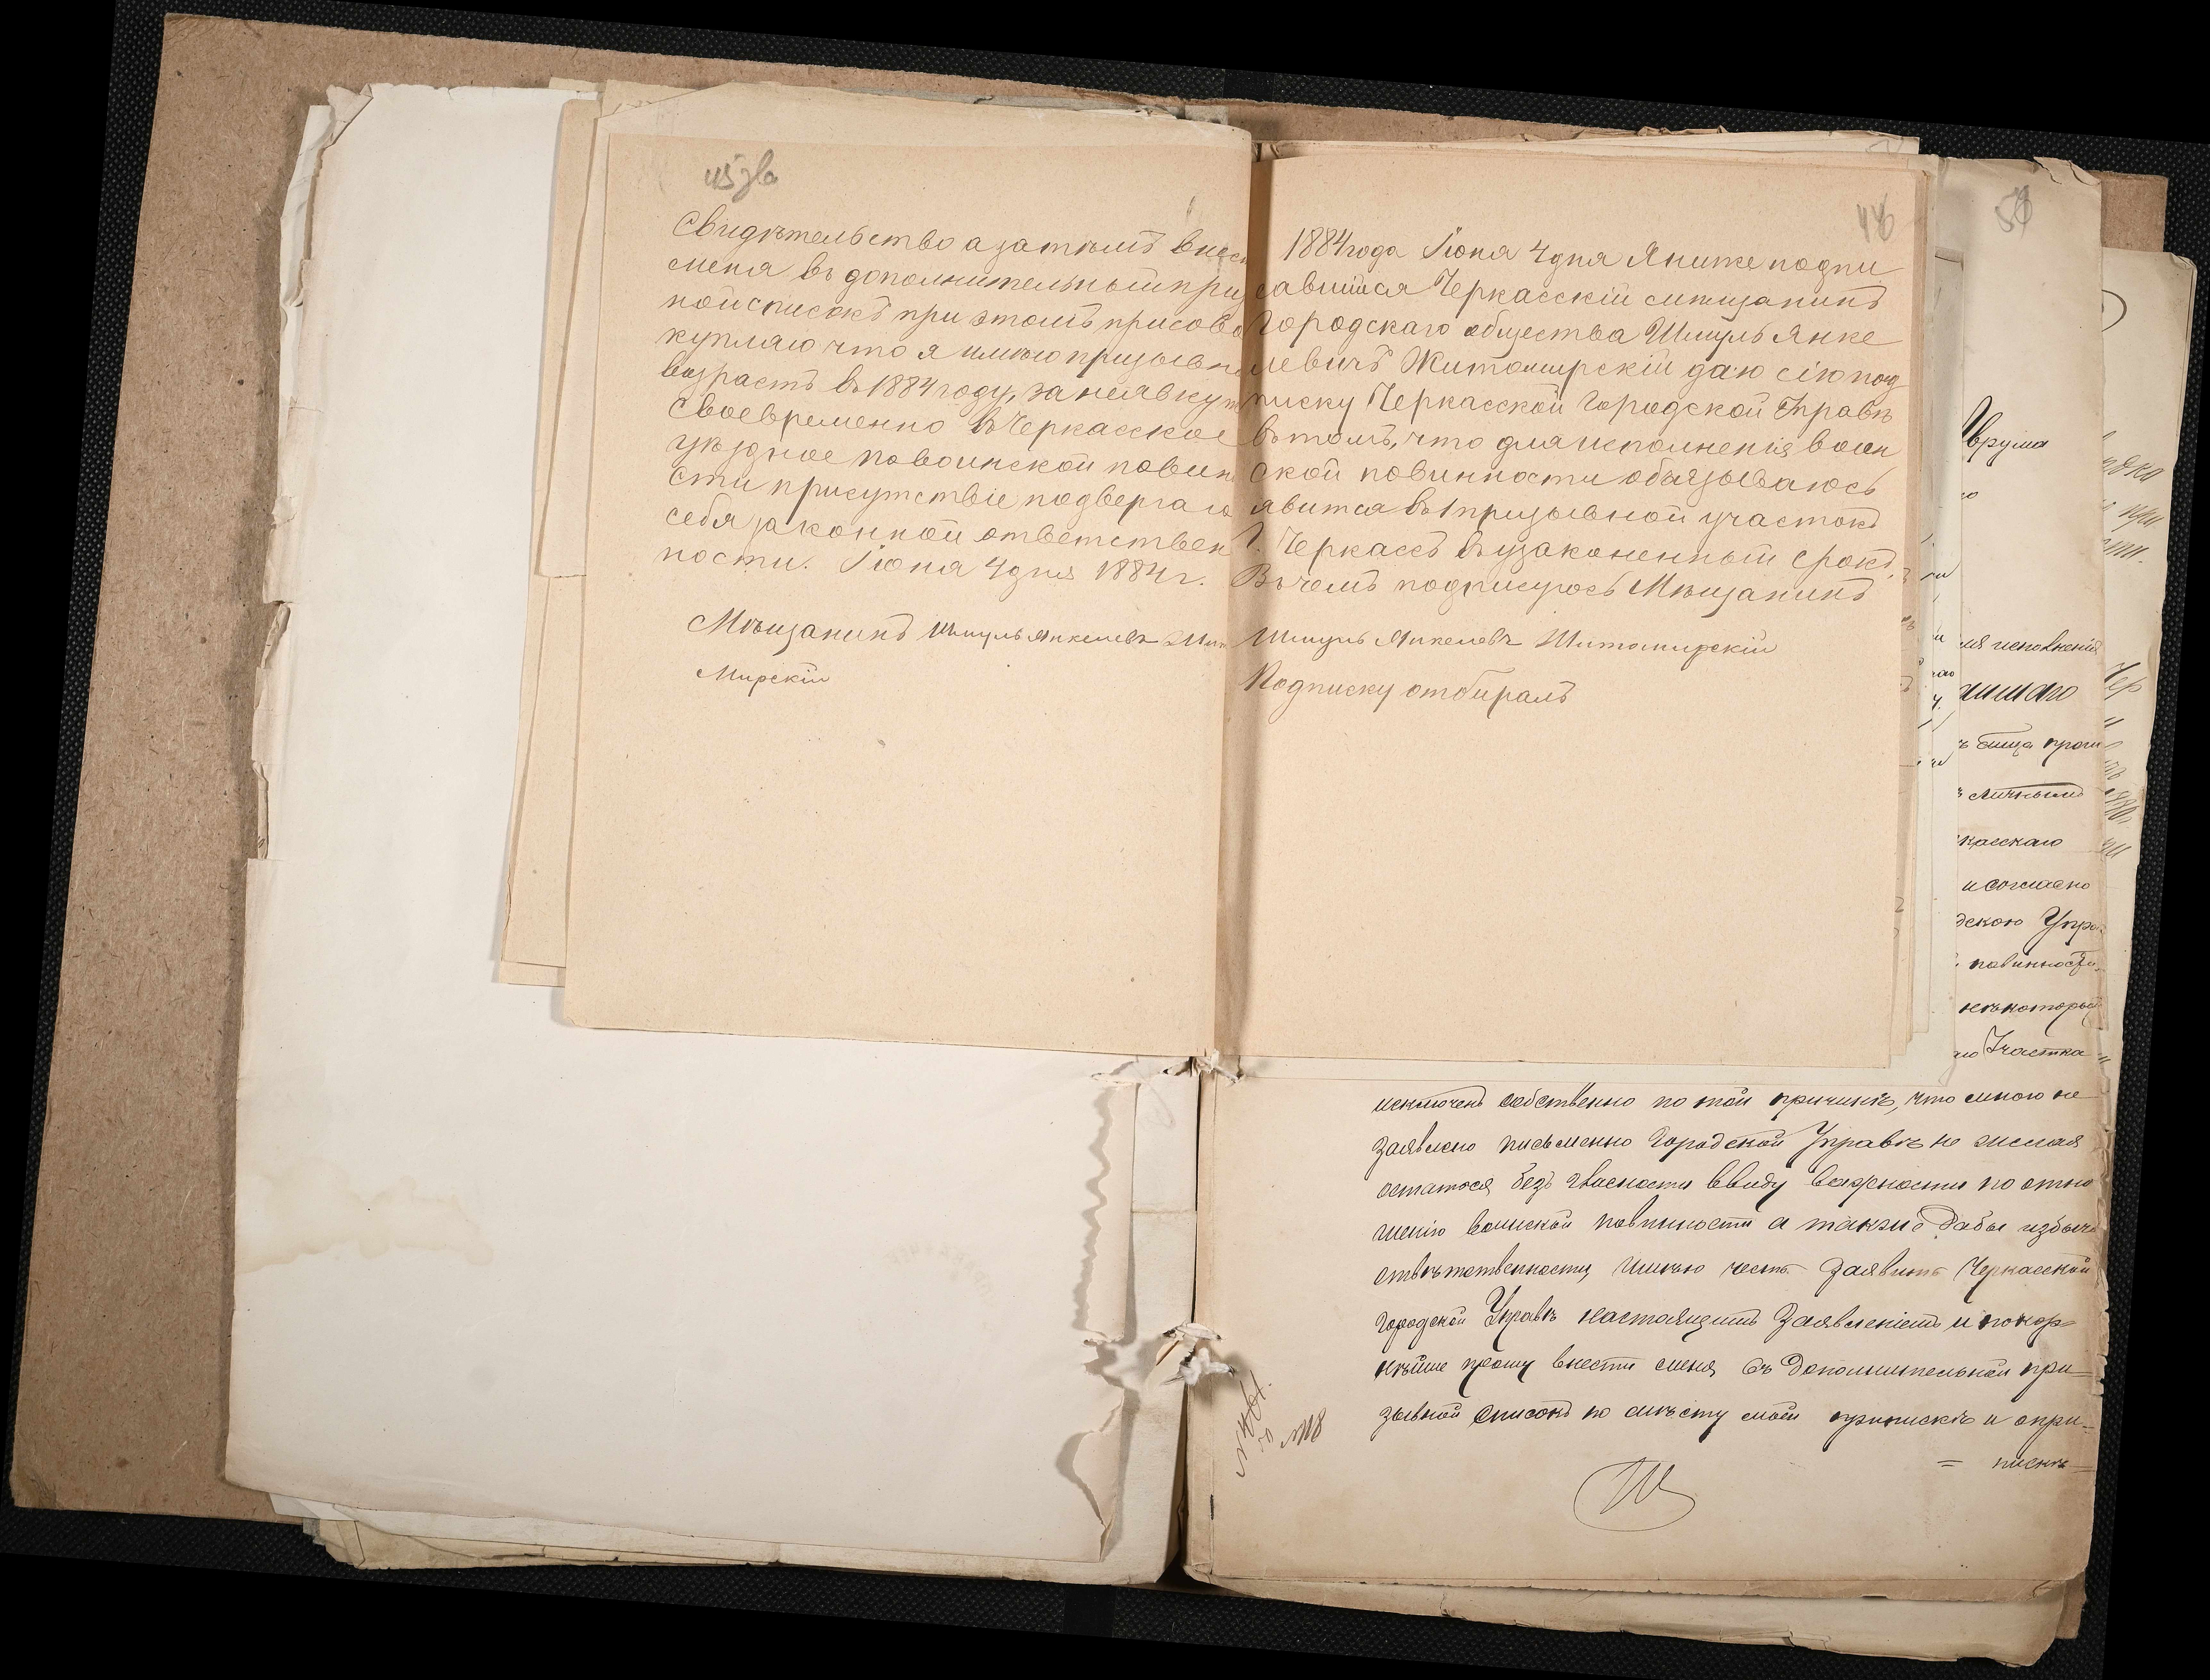 Свидѣтельство а затѣмъ внест
меня въ дополнительный приз
ной списокъ при этомъ присово
купляю что я имѣю призывн
возрастъ въ 1884 году, за неявку
своевременно въ Черкасское
уѣздное повоинской повин
сти присутствіе подвергаю
себя законной ответствен
ности. Іюня 4 дня 1884 г.
Мѣщанинъ Шмуль Янкелевъ Жит
Мирскій
48
1884 года Іюня 4 дня Я ниже подпи
савшійся Черкасскій мещанинъ
Городскаго общества Шмуль Янке
левичъ Житомирскій даю сію под
писку Черкасской Городской Управѣ
въ томъ, что для исполненія воин
ской повинности обязываюсь
явится въ 1 призывной участокъ
Г. Черкассъ въ узаконенный срокъ,
Въ чемъ подписуюсь Мѣщанинъ
Шмуль Янкелевъ Житомирскій
Подписку отбиралъ
Аврума
ля исполненія
касскаго
и согласно
дскою Упра
повинности
некоторый
Участка
исключенъ собственно по той причинѣ, что мною не
заявлено письменно Городской Управѣ не желая
остатося безъ гласности ввиду важности по отно
шенію воинской повинности а также дабы избѣжа
отвѣтственности, имѣю честь заявить Черкасской
Городской Управѣ настоящимъ Заявленіемъ и покор=
нѣйше прошу внести меня въ дополнительной при=
зывной списокъ по мѣсту моей приписки и о при=
= пискѣ=